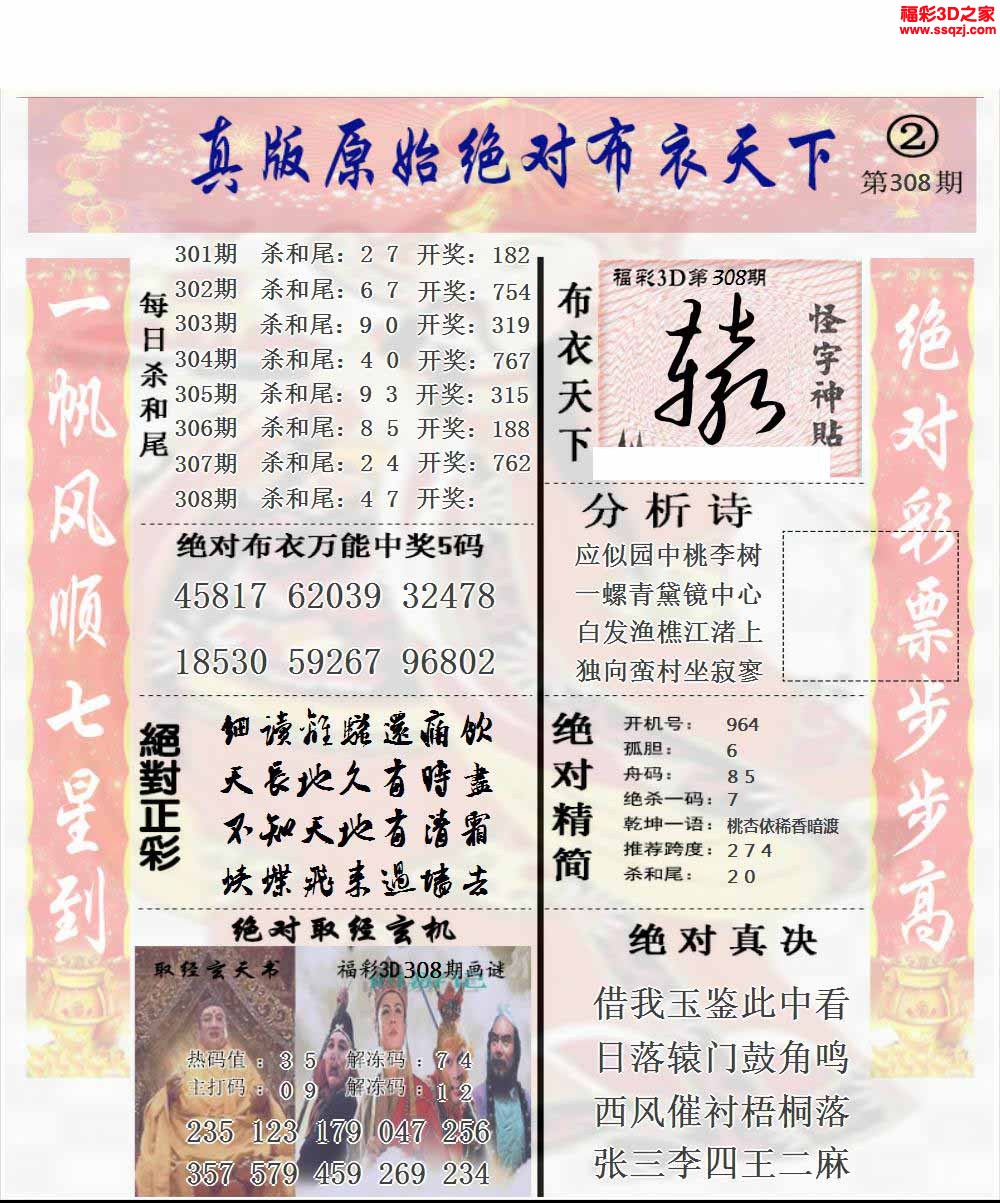 福彩3D之家
www.ssqzj.com
真版原始绝对布衣天下
②
第308期
一帆风顺七星到
每日杀和尾
301期 杀和尾：2 7 开奖：182
302期 杀和尾：6 7 开奖：754
303期 杀和尾：9 0 开奖：319
304期 杀和尾：4 0 开奖：767
305期 杀和尾：9 3 开奖：315
306期 杀和尾：8 5 开奖：188
307期 杀和尾：2 4 开奖：762
308期 杀和尾：4 7 开奖：
绝对布衣万能中奖5码
45817 62039 32478
18530 59267 96802
絕對正彩
細讀離騷還痛飲
天長地久有時盡
不知天地有清霜
蛱蝶飛来過墻去
绝对取经玄机
取经玄天书
福彩3D308期画谜
热码值：3 5 解冻码：7 4
主打码：0 9 解冻码：1 2
235 123 179 047 256
357 579 459 269 234
布衣天下
福彩3D第308期
怪字神貼
分析诗
应似园中桃李树
一螺青黛镜中心
白发渔樵江渚上
独向蛮村坐寂寥
绝对精简
开机号： 964
孤胆： 6
舟码： 8 5
绝杀一码：7
乾坤一语：桃杏依稀香暗渡
推荐跨度：2 7 4
杀和尾： 2 0
绝对真决
借我玉鉴此中看
日落辕门鼓角鸣
西风催衬梧桐落
张三李四王二麻
绝对彩票步步高